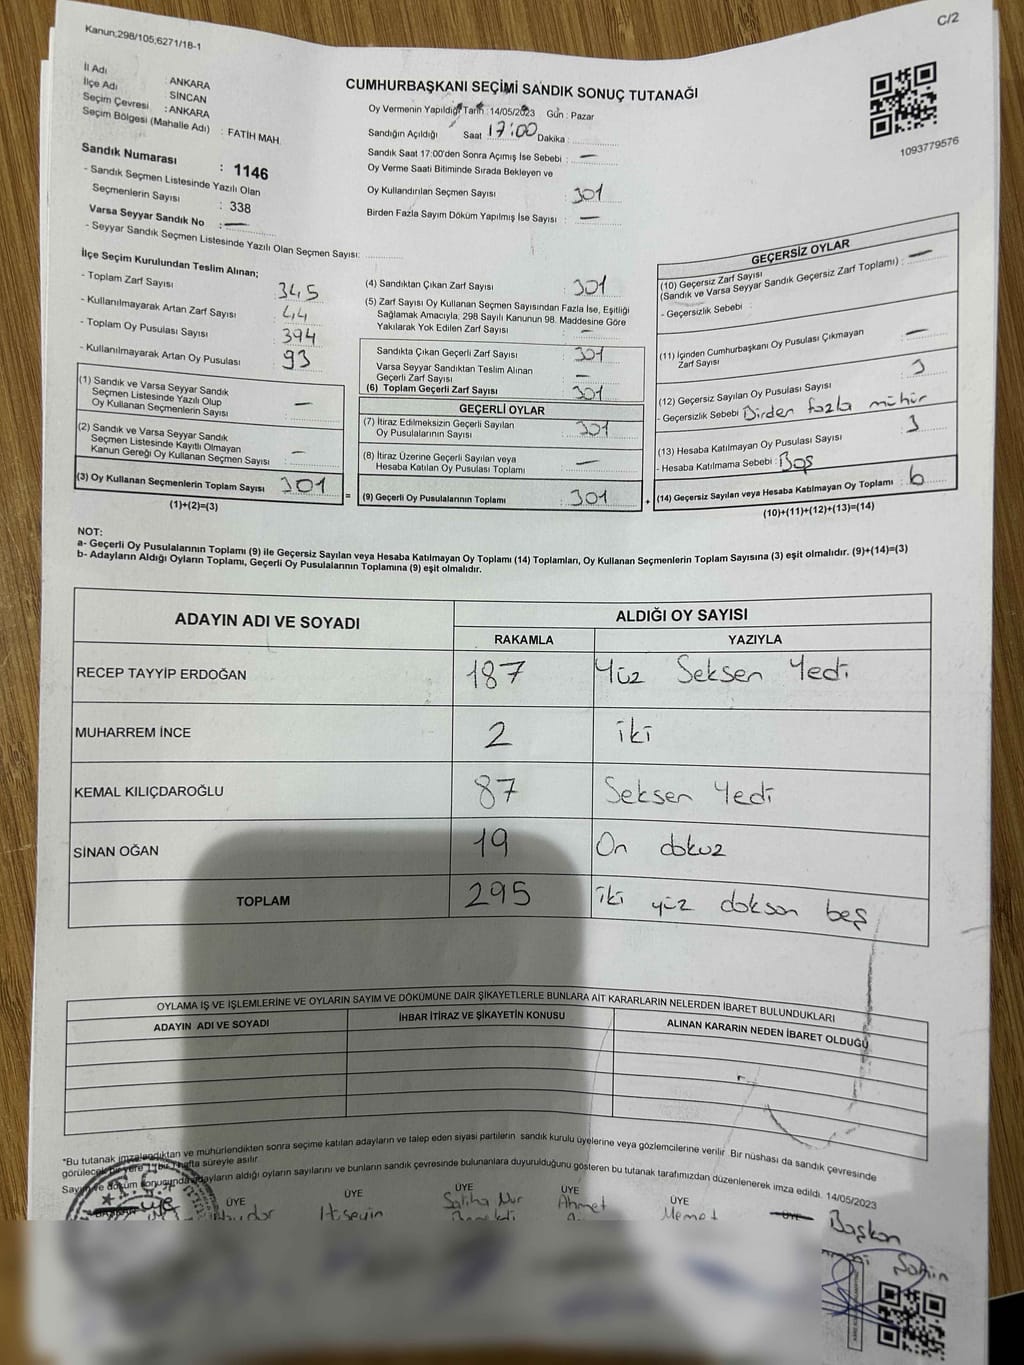 Kanun;298/105;6271/18-1
C/2
İl Adı : ANKARA
İlçe Adı : SİNCAN
Seçim Çevresi : ANKARA
Seçim Bölgesi (Mahalle Adı) : FATİH MAH.
CUMHURBAŞKANI SEÇİMİ SANDIK SONUÇ TUTANAĞI
Oy Vermenin Yapıldığı Tarih : 14/05/2023 Gün : Pazar
Sandığın Açıldığı Saat 17:00 Dakika :
Sandık Saat 17:00'den Sonra Açılmış İse Sebebi : —
Oy Verme Saati Bitiminde Sırada Bekleyen ve
Oy Kullandırılan Seçmen Sayısı : 301
Birden Fazla Sayım Döküm Yapılmış İse Sayısı : —
1093779576
Sandık Numarası : 1146
- Sandık Seçmen Listesinde Yazılı Olan
Seçmenlerin Sayısı : 338
Varsa Seyyar Sandık No : —
- Seyyar Sandık Seçmen Listesinde Yazılı Olan Seçmen Sayısı:
İlçe Seçim Kurulundan Teslim Alınan;
- Toplam Zarf Sayısı 345
- Kullanılmayarak Artan Zarf Sayısı 44
- Toplam Oy Pusulası Sayısı 394
- Kullanılmayarak Artan Oy Pusulası 93
(1) Sandık ve Varsa Seyyar Sandık
Seçmen Listesinde Yazılı Olup
Oy Kullanan Seçmenlerin Sayısı : —
(2) Sandık ve Varsa Seyyar Sandık
Seçmen Listesinde Kayıtlı Olmayan
Kanun Gereği Oy Kullanan Seçmen Sayısı : —
(3) Oy Kullanan Seçmenlerin Toplam Sayısı : 301
(1)+(2)=(3)
=
(4) Sandıktan Çıkan Zarf Sayısı : 301
(5) Zarf Sayısı Oy Kullanan Seçmen Sayısından Fazla İse, Eşitliği
Sağlamak Amacıyla, 298 Sayılı Kanunun 98. Maddesine Göre
Yakılarak Yok Edilen Zarf Sayısı : —
Sandıkta Çıkan Geçerli Zarf Sayısı : 301
Varsa Seyyar Sandıktan Teslim Alınan
Geçerli Zarf Sayısı : —
(6) Toplam Geçerli Zarf Sayısı : 301
GEÇERLİ OYLAR
(7) İtiraz Edilmeksizin Geçerli Sayılan
Oy Pusulalarının Sayısı : 301
(8) İtiraz Üzerine Geçerli Sayılan veya
Hesaba Katılan Oy Pusulaları Toplamı : —
(9) Geçerli Oy Pusulalarının Toplamı : 301
+
GEÇERSİZ OYLAR
(10) Geçersiz Zarf Sayısı
(Sandık ve Varsa Seyyar Sandık Geçersiz Zarf Toplamı) : —
- Geçersizlik Sebebi :
(11) İçinden Cumhurbaşkanı Oy Pusulası Çıkmayan
Zarf Sayısı : —
(12) Geçersiz Sayılan Oy Pusulası Sayısı : 3
- Geçersizlik Sebebi : Birden fazla mühür
(13) Hesaba Katılmayan Oy Pusulası Sayısı : 3
- Hesaba Katılmama Sebebi : Boş
(14) Geçersiz Sayılan veya Hesaba Katılmayan Oy Toplamı : 6
(10)+(11)+(12)+(13)=(14)
NOT:
a- Geçerli Oy Pusulalarının Toplamı (9) ile Geçersiz Sayılan veya Hesaba Katılmayan Oy Toplamı (14) Toplamları, Oy Kullanan Seçmenlerin Toplam Sayısına (3) eşit olmalıdır. (9)+(14)=(3)
b- Adayların Aldığı Oyların Toplamı, Geçerli Oy Pusulalarının Toplamına (9) eşit olmalıdır.
ADAYIN ADI VE SOYADI ALDIĞI OY SAYISI
RAKAMLA YAZIYLA
RECEP TAYYİP ERDOĞAN 187 Yüz Seksen Yedi
MUHARREM İNCE 2 iki
KEMAL KILIÇDAROĞLU 87 Seksen Yedi
SİNAN OĞAN 19 On dokuz
TOPLAM 295 iki yüz doksan beş
OYLAMA İŞ VE İŞLEMLERİNE VE OYLARIN SAYIM VE DÖKÜMÜNE DAİR ŞİKAYETLERLE BUNLARA AİT KARARLARIN NELERDEN İBARET BULUNDUKLARI
ADAYIN ADI VE SOYADI İHBAR İTİRAZ VE ŞİKAYETİN KONUSU ALINAN KARARIN NEDEN İBARET OLDUĞU
*Bu tutanak imzalandıktan ve mühürlendikten sonra seçime katılan adayların ve talep eden siyasi partilerin sandık kurulu üyelerine veya gözlemcilerine verilir. Bir nüshası da sandık çevresinde
görülecek bir yere 1 bir hafta süreyle asılır.
Sayım ve döküm sonucunda adayların aldığı oyların sayılarını ve bunların sandık çevresinde bulunanlara duyurulduğunu gösteren bu tutanak tarafımızdan düzenlenerek imza edildi. 14/05/2023
Üye ÜYE ÜYE ÜYE ÜYE ÜYE ÜYE Başkan
Hüseyin Saliha Nur Ahmet Memet
Şahin